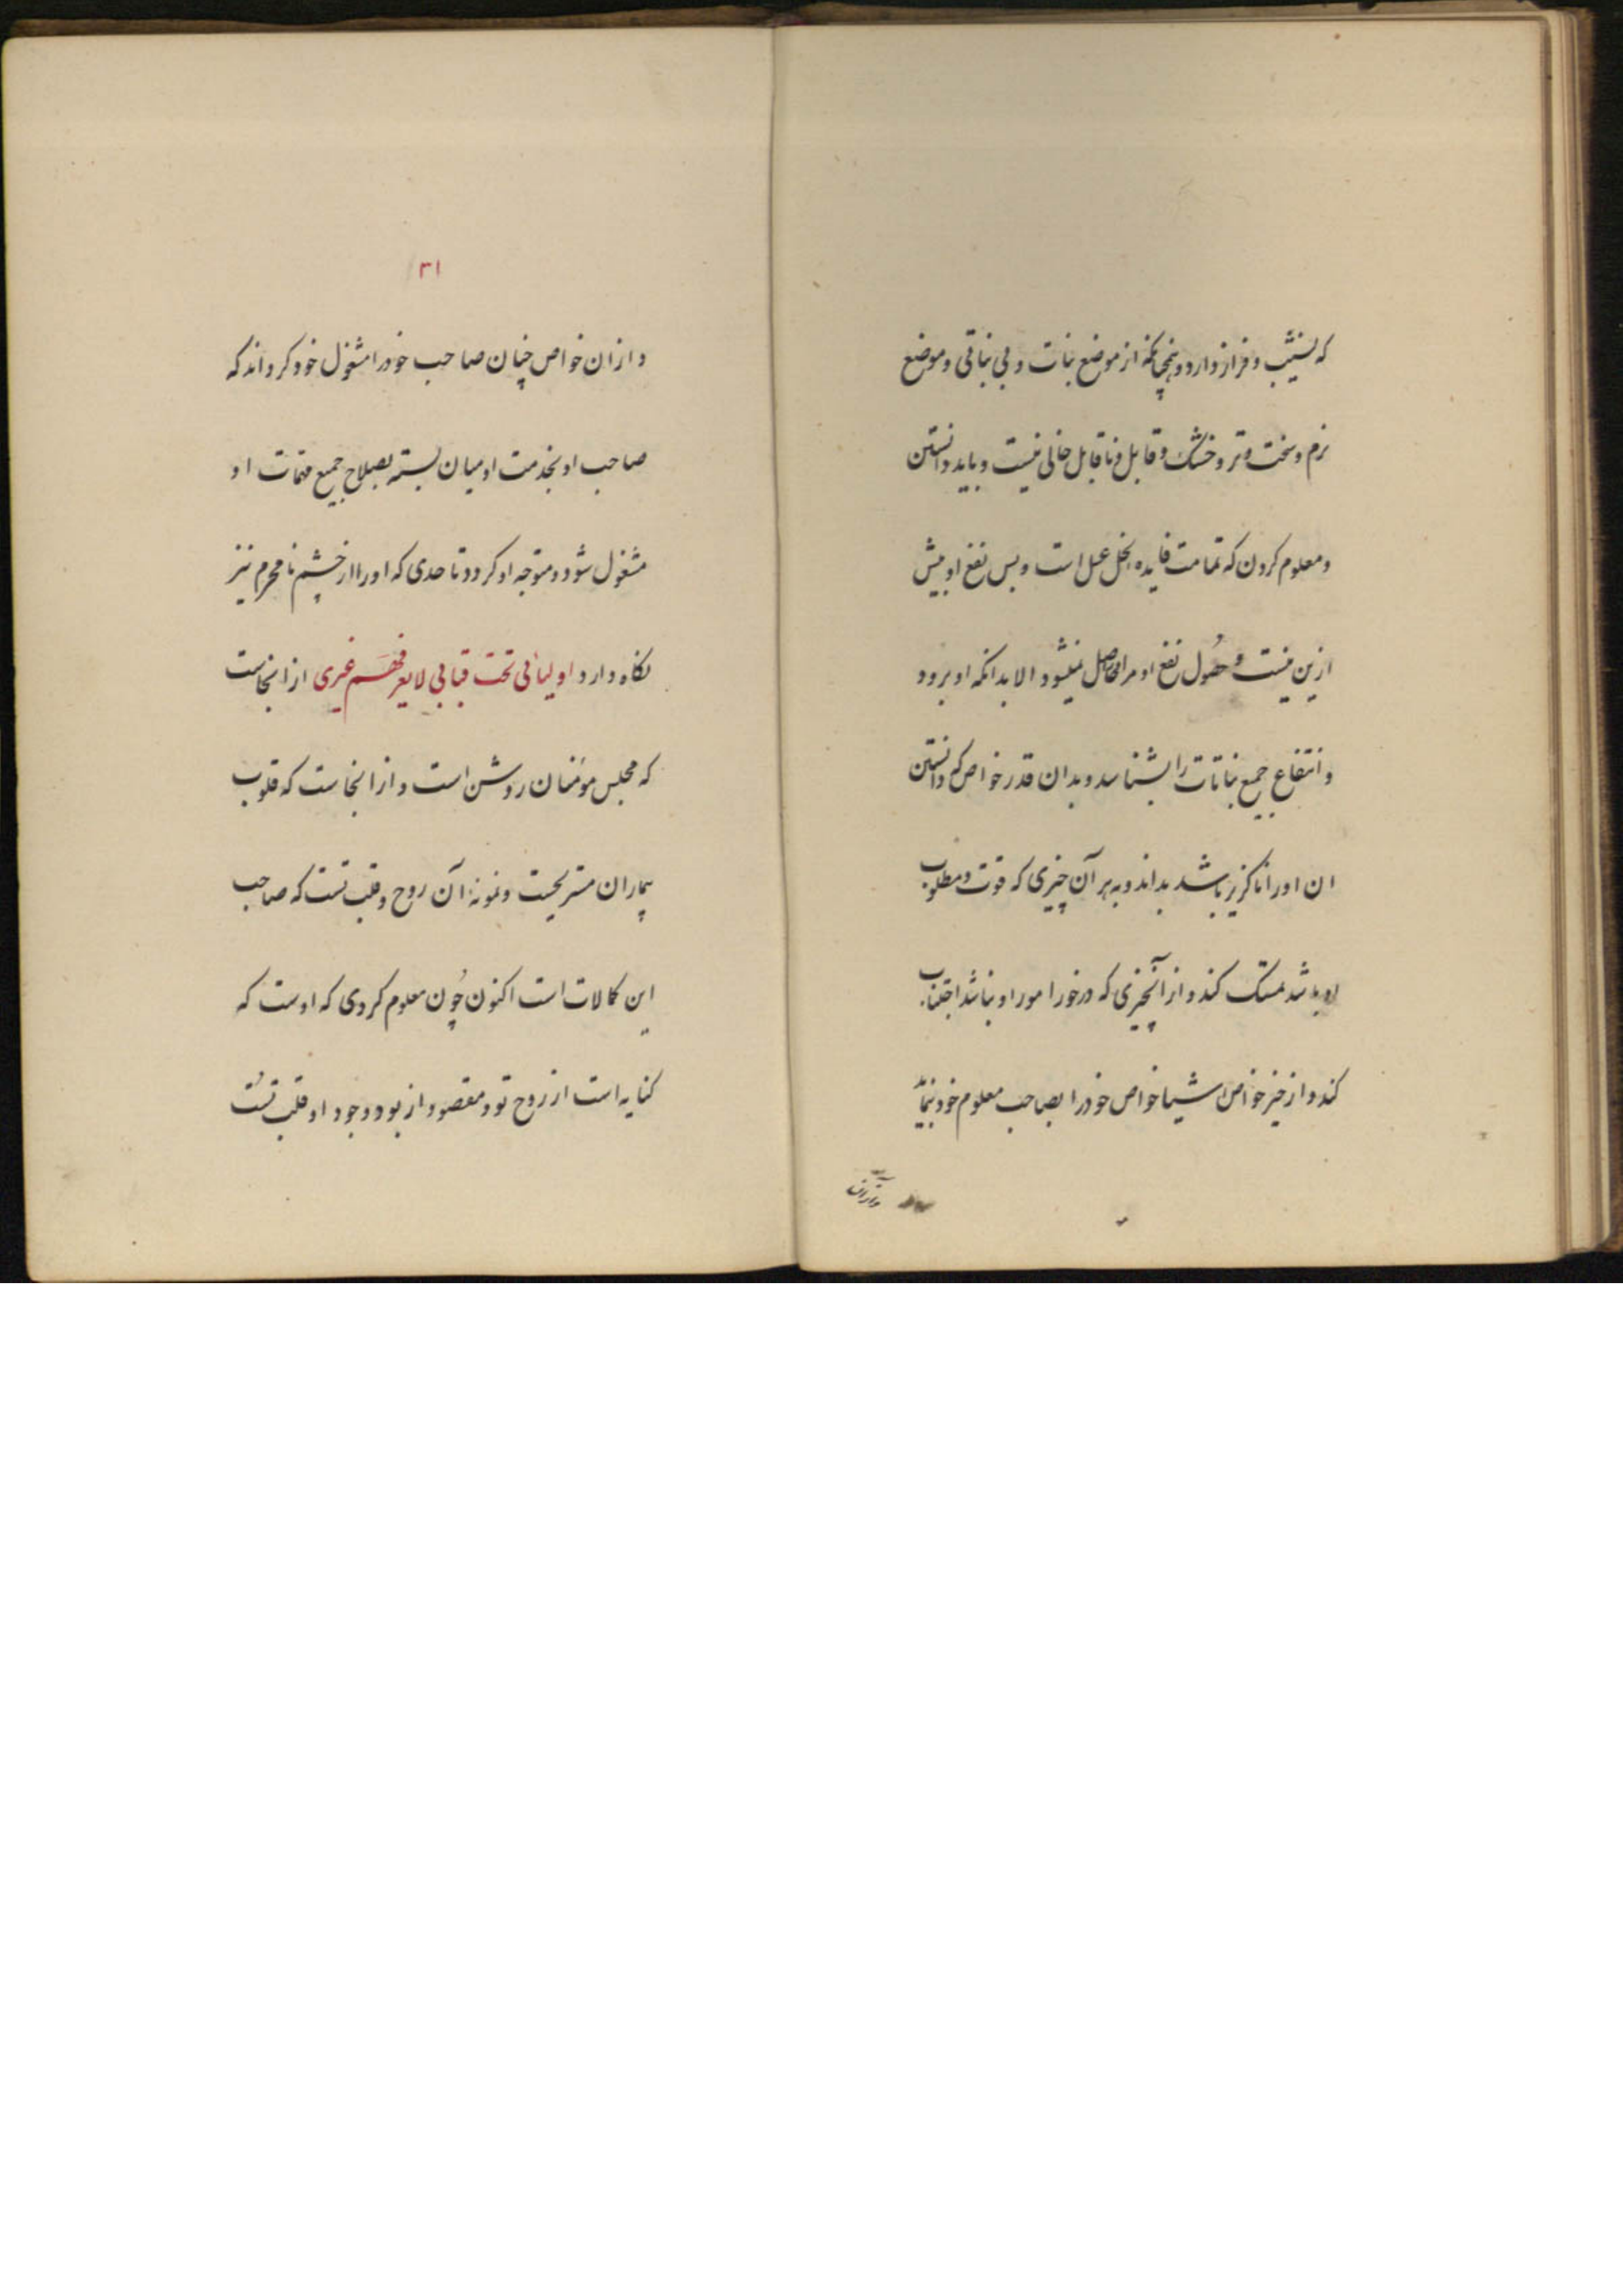 که نشیب و فراز دارد و همچنانکه از موضع نبات و بی نباتی و موضع
نرم و سخت و تر و خشک و قابل و ناقابل خالی نیست و باید دانستن
و معلوم کردن که تمامت فایده نخل عسل است و بس نفع او بیش
ازین نیست و حصول نفع او مرا حاصل نمیشود الا بدانکه او برود
و انتفاع جمیع نباتات را بشناسد و بدان قدر خواص که دانستن
ان او را ناگزیر باشد بداند و به هر آن چیزی که قوت و مطلوب
او باشد تمسک کند و از آنچیزی که درخور امور او نباشد اجتناب
کند و از خیز خواص اشیا خواص خود را بصاحب معلوم خود بنماید
و ازان
۳۱
و ازان خواص چنان صاحب خود را مشغول خود کرداند که
صاحب او بخدمت او میان بسته بصلاح جمیع مهمات او
مشغول شود و متوجه او کردد تا حدی که او را از چشم نامحرم نیز
نکاه دارد اولیائی تحت قبابی لا یعرفهم غیری از اینجاست
که مجلس مؤمنان روشن است و از اینجاست که قلوب
بیماران مستریحست و نمونه آن روح و قلب تست که صاحب
این کمالات است اکنون چون معلوم کردی که اوست که
کنایه است از روح تو و مقصود از بود وجود او قلب تست